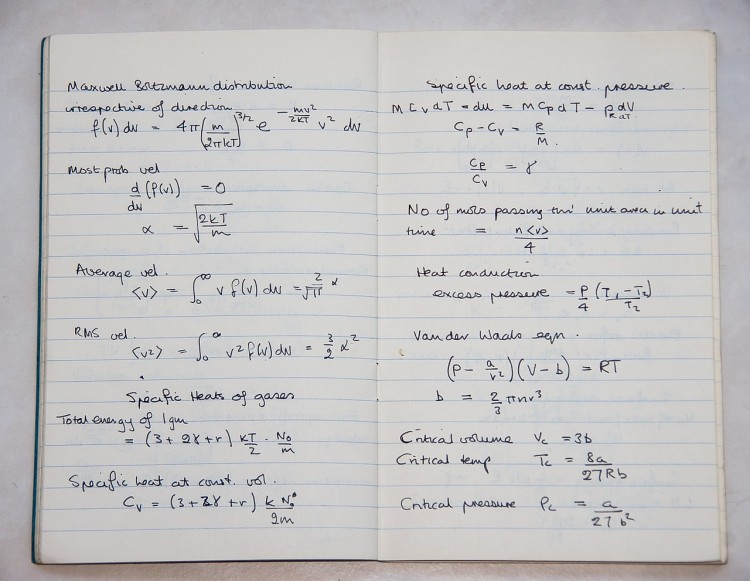 Maxwell Boltzmann distribution
irrespective of direction
f(v) dv = 4π(m/2πkT)^3/2 e^-mv²/2kT v² dv
Most prob vel
d/dv (f(v)) = 0
α = √(2kT/m)
Average vel.
<v> = ∫₀^∞ v f(v) dv = 2/√π α
RMS vel.
<v²> = ∫₀^∞ v² f(v) dv = 3/2 α²
Specific Heats of gases
Total energy of 1gm
= (3 + 2γ + r) kT/2 · N₀/m
Specific heat at const. vol.
Cv = (3 + 2γ + r) k N₀/2m
Specific heat at const. pressure.
M Cv dT = du = M Cp dT − p dV
R dT
Cp − Cv = R/M.
Cp/Cv = γ
No of mols passing thro' unit area in unit
time = n<v>/4
Heat conduction
excess pressure = P/4 (T₁ − T₂)/T₂
Van der Waals eqn.
(P − a/v²)(V − b) = RT
b = 2/3 πnr³
Critical volume Vc = 3b
Critical temp Tc = 8a/27Rb
Critical pressure Pc = a/27b²